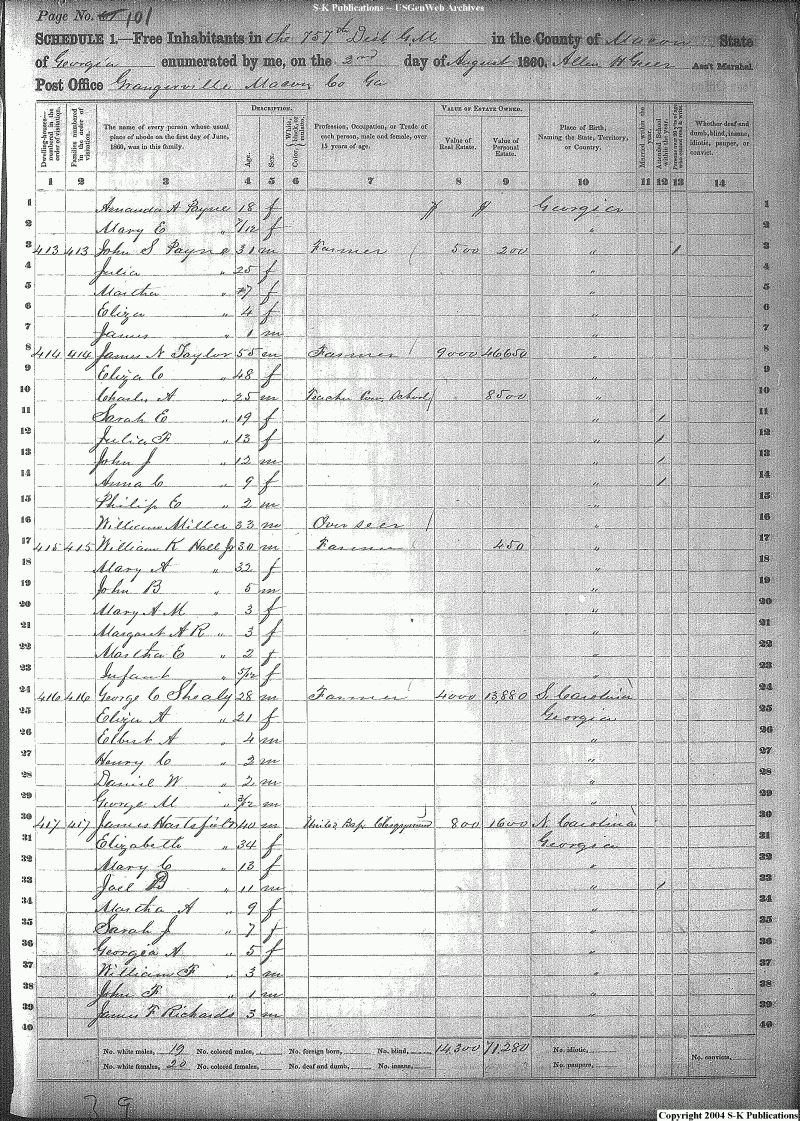 S-K Publications – USGenWeb Archives
Page No. 101
SCHEDULE 1.—Free Inhabitants in the 757th Dist G.M. in the County of Macon State
of Georgia enumerated by me, on the 2nd day of August 1860. Allen H Greer Ass't Marshal.
Post Office Grangerville Macon Co Ga
Dwelling-houses numbered in the order of visitation.
Families numbered in the order of visitation.
The name of every person whose usual place of abode on the first day of June, 1860, was in this family.
DESCRIPTION.
Age.
Sex.
Color, White, black, or mulatto.
Profession, Occupation, or Trade of each person, male and female, over 15 years of age.
VALUE OF ESTATE OWNED.
Value of Real Estate.
Value of Personal Estate.
Place of Birth, Naming the State, Territory, or Country.
Married within the year.
Attended School within the year.
Whether deaf and dumb, blind, insane, idiotic, pauper, or convict.
1 2 3 4 5 6 7 8 9 10 11 12 13 14
1 Amanda A Payne 18 f Georgia 1
2 Mary E " 7/12 f " 2
3 413 413 John S Payne 31 m Farmer 500 200 " / 3
4 Julia " 25 f " 4
5 Martha " 7 f " 5
6 Eliza " 4 f " 6
7 James " 1 m " 7
8 414 414 James N Taylor 55 m Farmer 9000 46650 " 8
9 Eliza C " 48 f " 9
10 Charles A " 25 m Teacher Com School " 8500 " 10
11 Sarah E " 19 f " / 11
12 Julia F " 13 f " / 12
13 John J " 12 m " / 13
14 Anna C " 9 f " / 14
15 Philip E " 2 m " 15
16 William Miller 33 m Overseer " 16
17 415 415 William K Hall Jr 30 m Farmer 450 " 17
18 Mary A " 32 f " 18
19 John B " 5 m " 19
20 Mary A M " 3 f " 20
21 Margaret A R " 3 f " 21
22 Martha E " 2 f " 22
23 Infant " 5/12 f " 23
24 416 416 George C Shealy 28 m Farmer 4000 13,880 S. Carolina 24
25 Eliza A " 21 f Georgia 25
26 Elbert A " 4 m " 26
27 Henry C " 2 m " 27
28 Daniel W " 2 m " 28
29 George M " 3/12 m " 29
30 417 417 James Hartsfield 40 m Bap Clergyman 800 1600 N. Carolina 30
31 Elizabeth " 34 f Georgia 31
32 Mary C " 13 f " 32
33 Joel B " 11 m " / 33
34 Martha A " 9 f " 34
35 Sarah J " 7 f " 35
36 Georgia A " 5 f " 36
37 William F " 3 m " 37
38 John F " 1 m " 38
39 James F Richards 3 m " 39
40 40
No. white males, 19 No. colored males, No. foreign born, No. blind, 14,300 71,280 No. idiotic,
No. white females, 20 No. colored females, No. deaf and dumb, No. insane, No. paupers, No. convicts,
Copyright 2004 S-K Publications